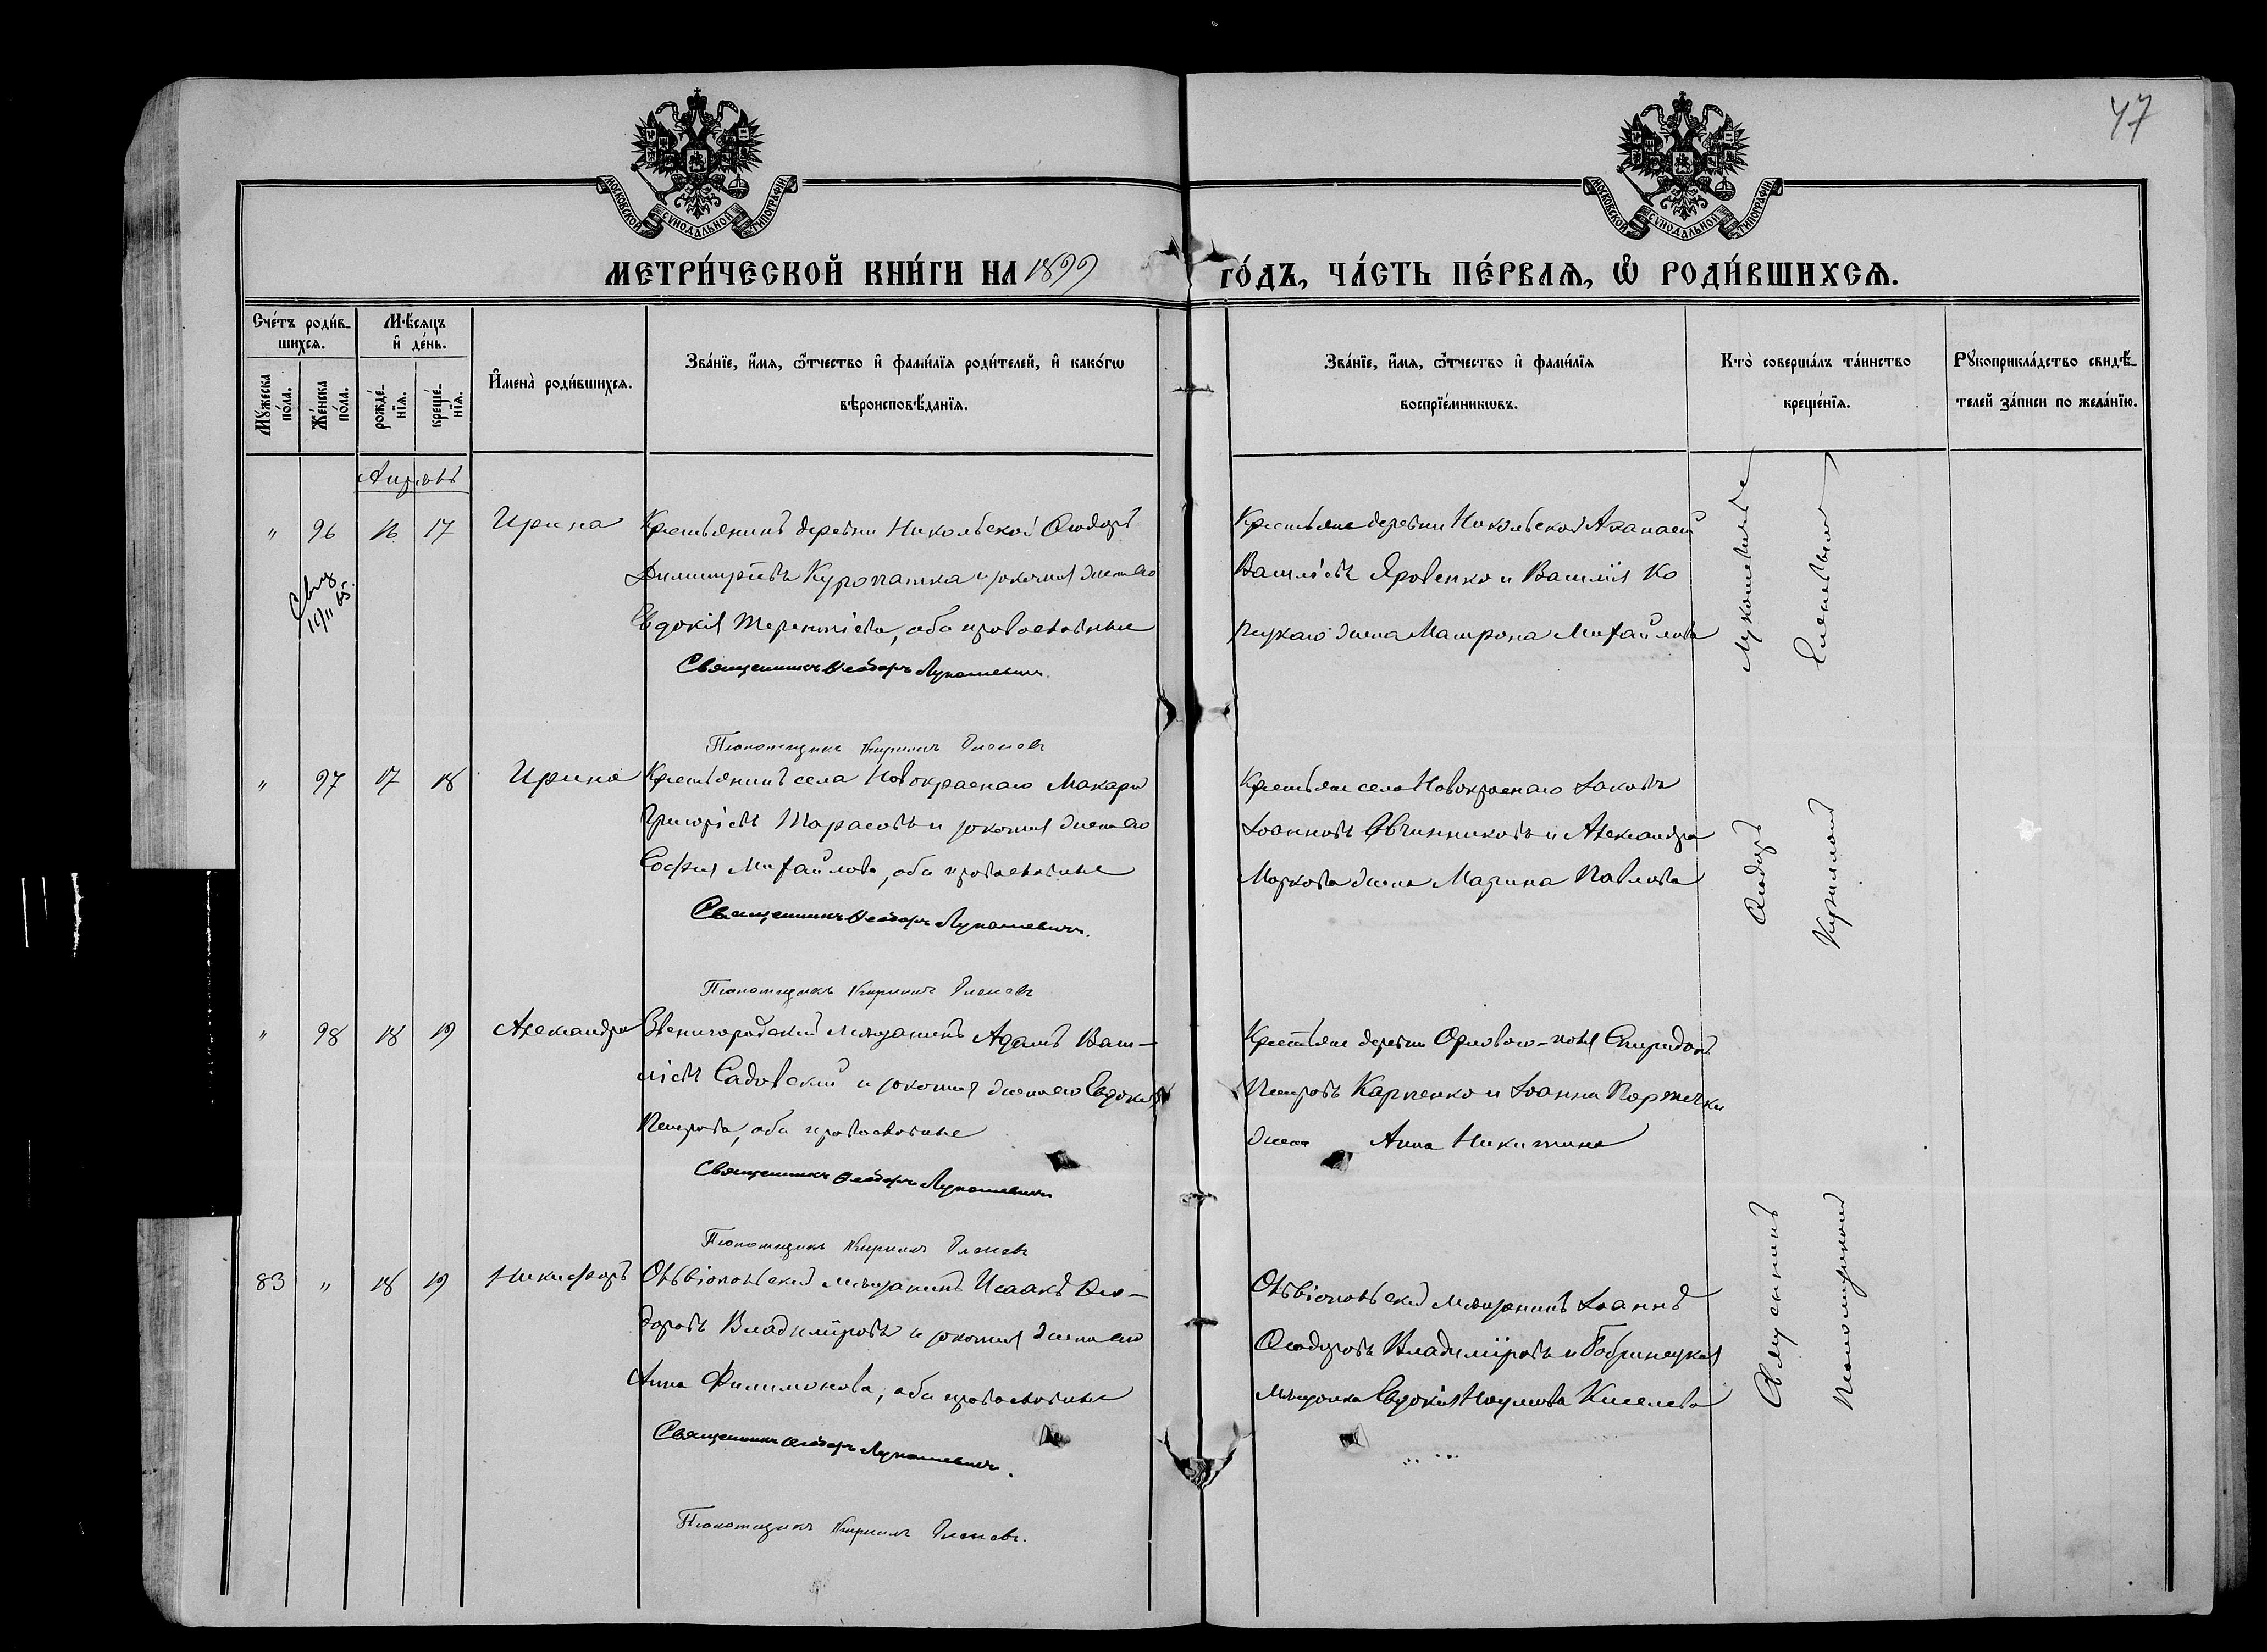 47
МОСКОВСКОЙ СѴНОДАЛЬНОЙ ТИПОГРАФІИ
МОСКОВСКОЙ СѴНОДАЛЬНОЙ ТИПОГРАФІИ
МЕТРИ́ЧЕСКОЙ КНИ́ГИ НА 1899 ГО́ДЪ, ЧА́СТЬ ПЕ́РВАѦ, Ѽ РОДИ́ВШИХСѦ.
Сче́тъ роди́в-
шихсѧ.
Мꙋ́жеска
по́ла.
Же́нска
по́ла.
Мѣ́сѧцъ
и҆ де́нь.
рожде́-
нїѧ.
креще́-
нїѧ.
И҆мена̀ роди́вшихсѧ.
Зва́нїе, и҆́мѧ, ѻ҆́тчество и҆ фами́лїѧ роди́телей, и҆ како́гѡ
вѣроисповѣ́данїѧ.
Зва́нїе, и҆́мѧ, ѻ҆́тчество и҆ фами́лїѧ
воспрїе́мникѡвъ.
Кто̀ соверша́лъ та́инство
креще́нїѧ.
Рꙋкоприкла́дство свидѣ́-
телей за́писи по жела́нїю.
Апрѣль
" 96 16 17 Ирина
Крестьянинъ деревни Никольской Ѳеодоръ
Димитріевъ Куропатка и законная жена его
Евдокія Терентіева, оба православные
Священникъ Ѳеодоръ Лукашевичъ.
Псаломщикъ Кириллъ Еленевъ
Крестьяне деревни Никольской Аѳанасій
Василіевъ Яровенко и Василія Ко
жена Матрона Михайлова
" 97 17 18 Ирина
Крестьянинъ села Новокраснаго Макарій
Григоріевъ Тарасовъ и законная жена его
Софія Михайлова, оба православные
Священникъ Ѳеодоръ Лукашевичъ.
Псаломщикъ Кириллъ Еленевъ
Крестьяне села Новокраснаго Іаковъ
Іоанновъ Овчинниковъ и Александра
Маркова жена Марина Павлова
" 98 18 19 Александра
Звенигородскій мѣщанинъ Адамъ Васи-
ліевъ Садовскій и законная жена его Евдокія
Петрова, оба православные
Священникъ Ѳеодоръ Лукашевичъ
Псаломщикъ Кириллъ Еленевъ
Крестьяне деревни Орлово-поля Спиридонъ
Петровъ Карпенко и Іоанна
жена Анна Никитина
83 " 18 19 Никифоръ
Ольвіопольскій мѣщанинъ Исаакъ Ѳео-
доровъ Владиміровъ и законная жена его
Анна Филимонова, оба православные
Священникъ Ѳеодоръ Лукашевичъ.
Псаломщикъ Кириллъ Еленевъ.
Ольвіопольскій мѣщанинъ Іоаннъ
Ѳеодоровъ Владиміровъ и Бобринецкая
мѣщанка Евдокія Наумова Киселева
Священникъ Ѳеодоръ Лукашевичъ
Псаломщикомъ Кирилломъ Еленевымъ